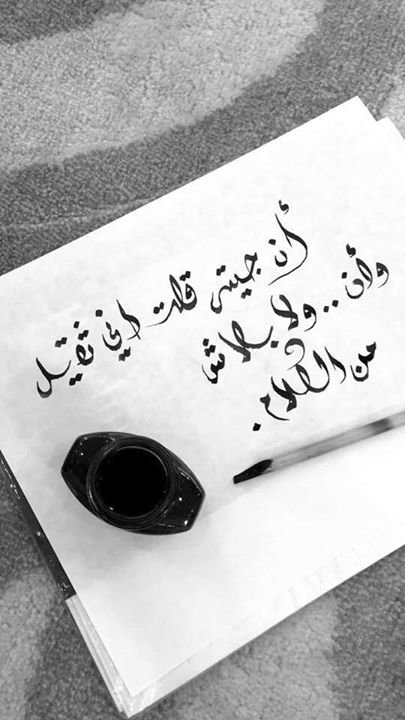 أن جيت قلت اني ثقيل
وأن .. ولا بلاش
من الكلام.